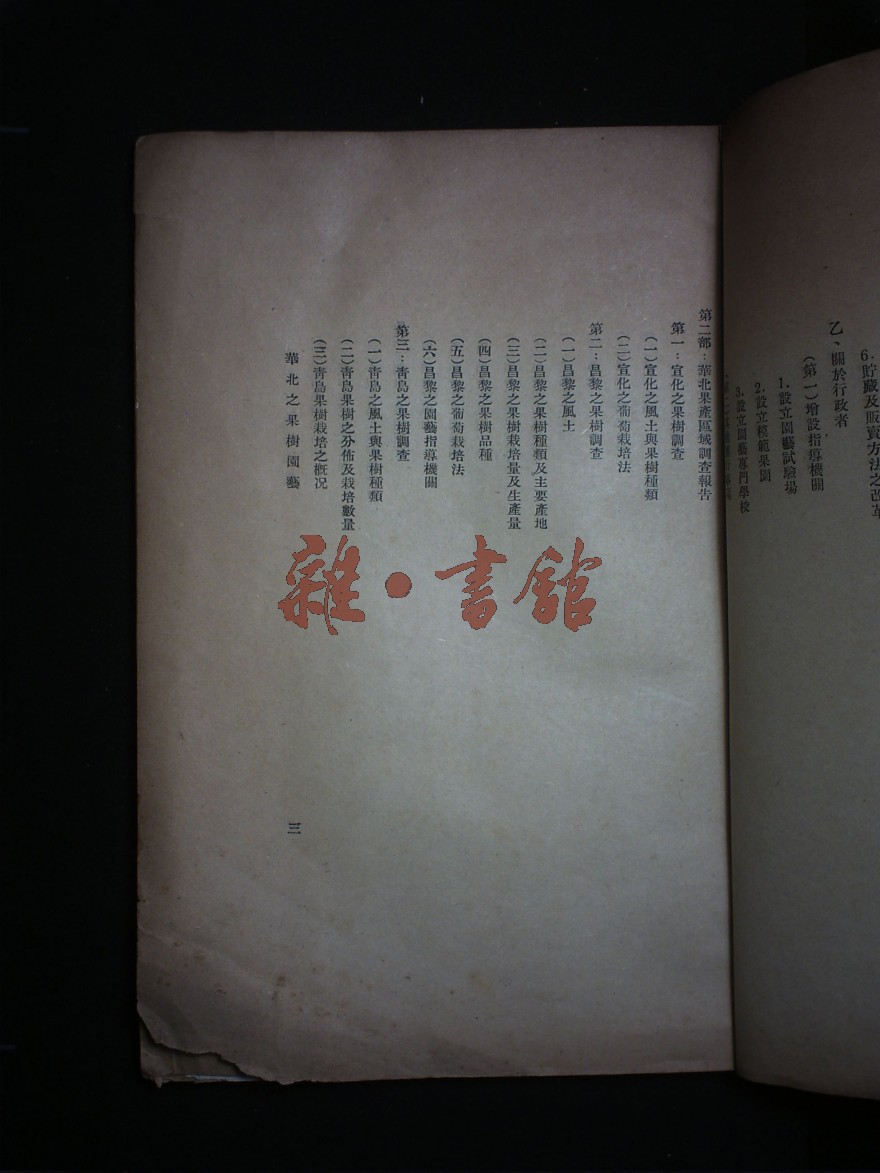 6.貯藏及販賣方法之改革
乙、關於行政者
(第一)增設指導機關
1.設立園藝試驗場
2.設立模範果園
3.設立園藝專門學校
第二部：華北果產區域調查報告
第一：宣化之果樹調查
(一)宣化之風土與果樹種類
(二)宣化之葡萄栽培法
第二：昌黎之果樹調查
(一)昌黎之風土
(二)昌黎之果樹種類及主要產地
(三)昌黎之果樹栽培量及生產量
(四)昌黎之果樹品種
(五)昌黎之葡萄栽培法
(六)昌黎之園藝指導機關
第三：靑島之果樹調查
(一)靑島之風土與果樹種類
(二)靑島果樹之分佈及栽培數量
(三)靑島果樹栽培之槪况
華北之果樹園藝
三
雜·書館